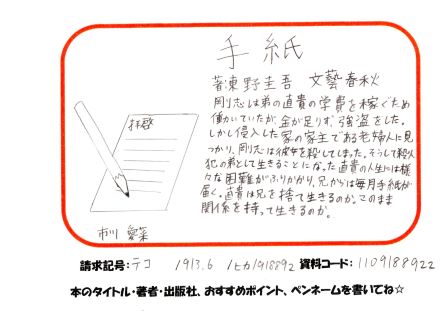 手紙
著東野圭吾 文藝春秋
剛志は弟の直貴の学費を稼ぐため
働いていたが、金が足りず、強盗をした。
しかし侵入した家の家主である老婦人に見
つかり、剛志は彼女を殺してしまった。そうして殺人
犯の弟として生きることになった直貴の人生には様
々な困難がふりかかり、兄からは毎月手紙が
届く。直貴は兄を捨て生きるのか。このまま
関係を持って生きるのか。
拝啓
市川 愛菜
請求記号:テコ 1913.6 1ヒカ1918892 資料コード:1109188922
本のタイトル・著者・出版社、おすすめポイント、ペンネームを書いてね☆